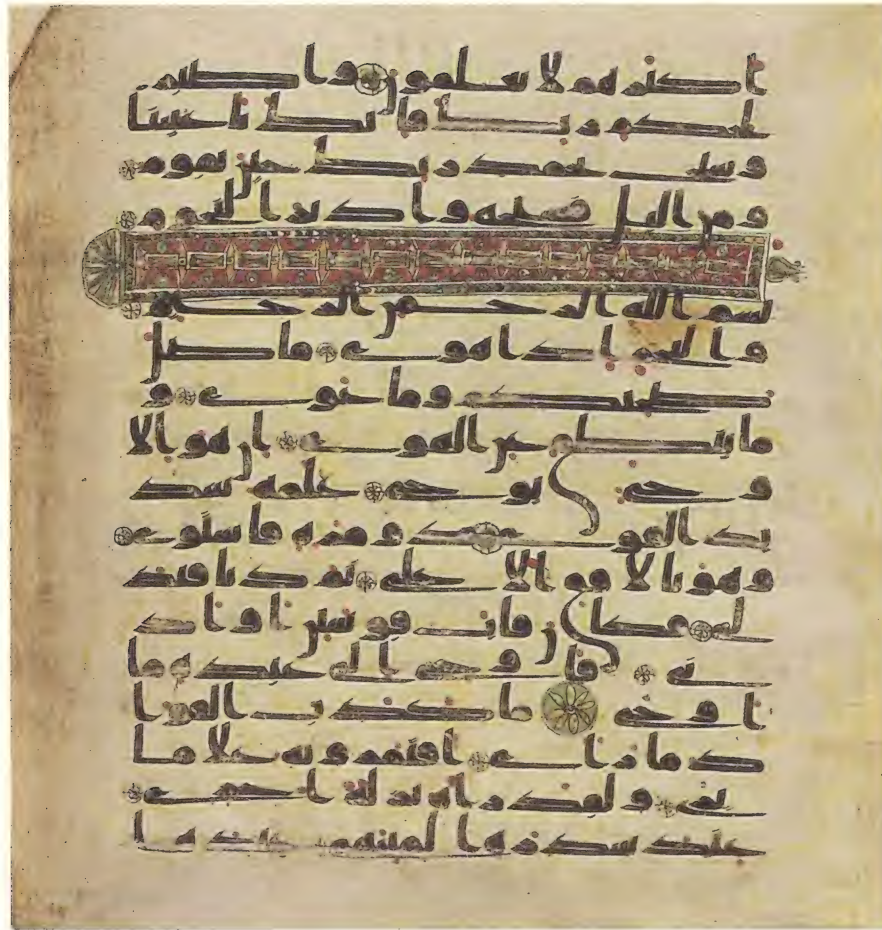 اكثرهم لا يعلمون واصبر
لحكم ربك فانك باعيننا
وسبح بحمد ربك حين تقوم
ومن اليل فسبحه وادبر النجوم
بسم الله الرحمن الرحيم
والنجم اذا هوى ما ضل
صحبكم وما غوى و
ما ينطق عن الهوى ان هو الا
وحي يوحى علمه شد
يد القوى ذو مره فاستوى
وهو بالافق الاعلى ثم دنا فتد
لى فكان قاب قوسين او اد
نى فاوحى الى عبده ما
اوحى ما كذب الفوا
د ما راى افتمرونه على ما
يرى ولقد راه نزله اخرى
عند سدره المنتهى عندها